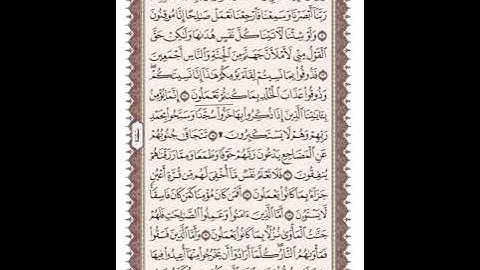 رَبَّنَآ أَبْصَرْنَا وَسَمِعْنَا فَٱرْجِعْنَا نَعْمَلْ صَٰلِحًا إِنَّا مُوقِنُونَ
۝ وَلَوْ شِئْنَا لَءَاتَيْنَا كُلَّ نَفْسٍ هُدَىٰهَا وَلَٰكِنْ حَقَّ
ٱلْقَوْلُ مِنِّى لَأَمْلَأَنَّ جَهَنَّمَ مِنَ ٱلْجِنَّةِ وَٱلنَّاسِ أَجْمَعِينَ
۝ فَذُوقُوا۟ بِمَا نَسِيتُمْ لِقَآءَ يَوْمِكُمْ هَٰذَآ إِنَّا نَسِينَٰكُمْ ۖ
وَذُوقُوا۟ عَذَابَ ٱلْخُلْدِ بِمَا كُنتُمْ تَعْمَلُونَ ۝ إِنَّمَا يُؤْمِنُ
بِـَٔايَٰتِنَا ٱلَّذِينَ إِذَا ذُكِّرُوا۟ بِهَا خَرُّوا۟ سُجَّدًا وَسَبَّحُوا۟ بِحَمْدِ
رَبِّهِمْ وَهُمْ لَا يَسْتَكْبِرُونَ ۩ ۝ تَتَجَافَىٰ جُنُوبُهُمْ
عَنِ ٱلْمَضَاجِعِ يَدْعُونَ رَبَّهُمْ خَوْفًا وَطَمَعًا وَمِمَّا رَزَقْنَٰهُمْ
يُنفِقُونَ ۝ فَلَا تَعْلَمُ نَفْسٌ مَّآ أُخْفِىَ لَهُم مِّن قُرَّةِ أَعْيُنٍ
جَزَآءًۢ بِمَا كَانُوا۟ يَعْمَلُونَ ۝ أَفَمَن كَانَ مُؤْمِنًا كَمَن كَانَ فَاسِقًا ۚ
لَّا يَسْتَوُۥنَ ۝ أَمَّا ٱلَّذِينَ ءَامَنُوا۟ وَعَمِلُوا۟ ٱلصَّٰلِحَٰتِ فَلَهُمْ
جَنَّٰتُ ٱلْمَأْوَىٰ نُزُلًۢا بِمَا كَانُوا۟ يَعْمَلُونَ ۝ وَأَمَّا ٱلَّذِينَ فَسَقُوا۟
فَمَأْوَىٰهُمُ ٱلنَّارُ ۖ كُلَّمَآ أَرَادُوٓا۟ أَن يَخْرُجُوا۟ مِنْهَآ أُعِيدُوا۟ فِيهَا